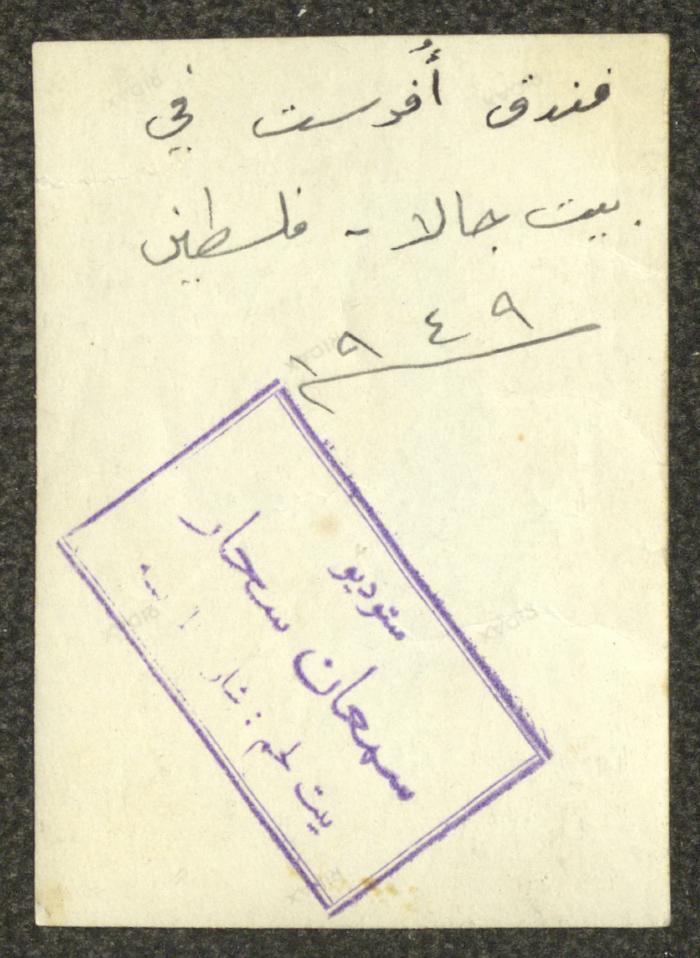 فندق أُفرست في
بيت جالا - فلسطين
١٩٤٩
ستوديو
سمعان سحار
بيت لحم :
RIDAX